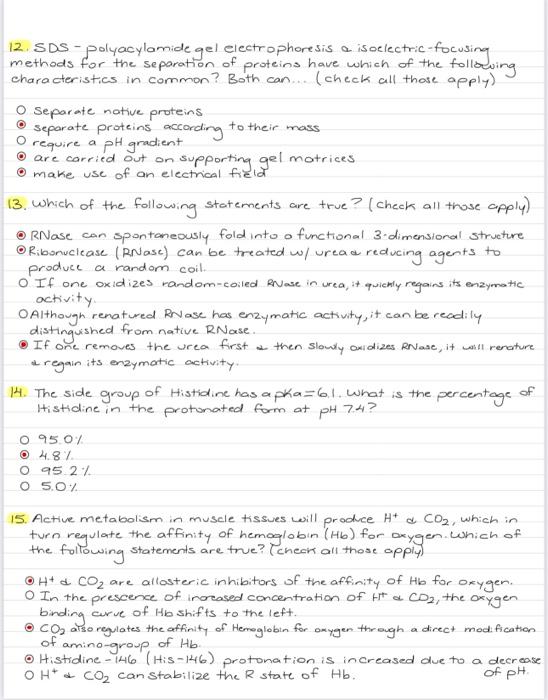 12. SDS - polyacylamide gel electrophoresis & isoelectric-focusing
methods for the separation of proteins have which of the following
characteristics in common? Both can... (check all those apply)
Separate native proteins
separate proteins according to their mass
require a pH gradient
are carried out on supporting gel matrices
make use of an electrical field
13. Which of the following statements are true? (check all those apply)
RNase can spontaneously fold into a functional 3-dimensional structure
Ribonuclease (RNase) can be treated w/ urea & reducing agents to
produce a random coil.
If one oxidizes random-coiled RNase in urea, it quickly regains its enzymatic
activity.
Although renatured RNase has enzymatic activity, it can be readily
distinguished from native RNase.
If one removes the urea first & then slowly oxidizes RNase, it will renature
& regain its enzymatic activity.
14. The side group of Histidine has a pKa=6.1. What is the percentage of
Histidine in the protonated form at pH 7.4?
95.0%
4.8%
95.2%
5.0%
15. Active metabolism in muscle tissues will produce H+ & CO2, which in
turn regulate the affinity of hemoglobin (Hb) for oxygen. Which of
the following statements are true? (check all those apply)
H+ & CO2 are allosteric inhibitors of the affinity of Hb for oxygen.
In the prescence of increased concentration of H+ & CO2, the oxygen
binding curve of Hb shifts to the left.
CO2 also regulates the affinity of Hemoglobin for oxygen through a direct modification
of amino-group of Hb.
Histidine-146 (His-146) protonation is increased due to a decrease
of pH.
H+ & CO2 can stabilize the R state of Hb.